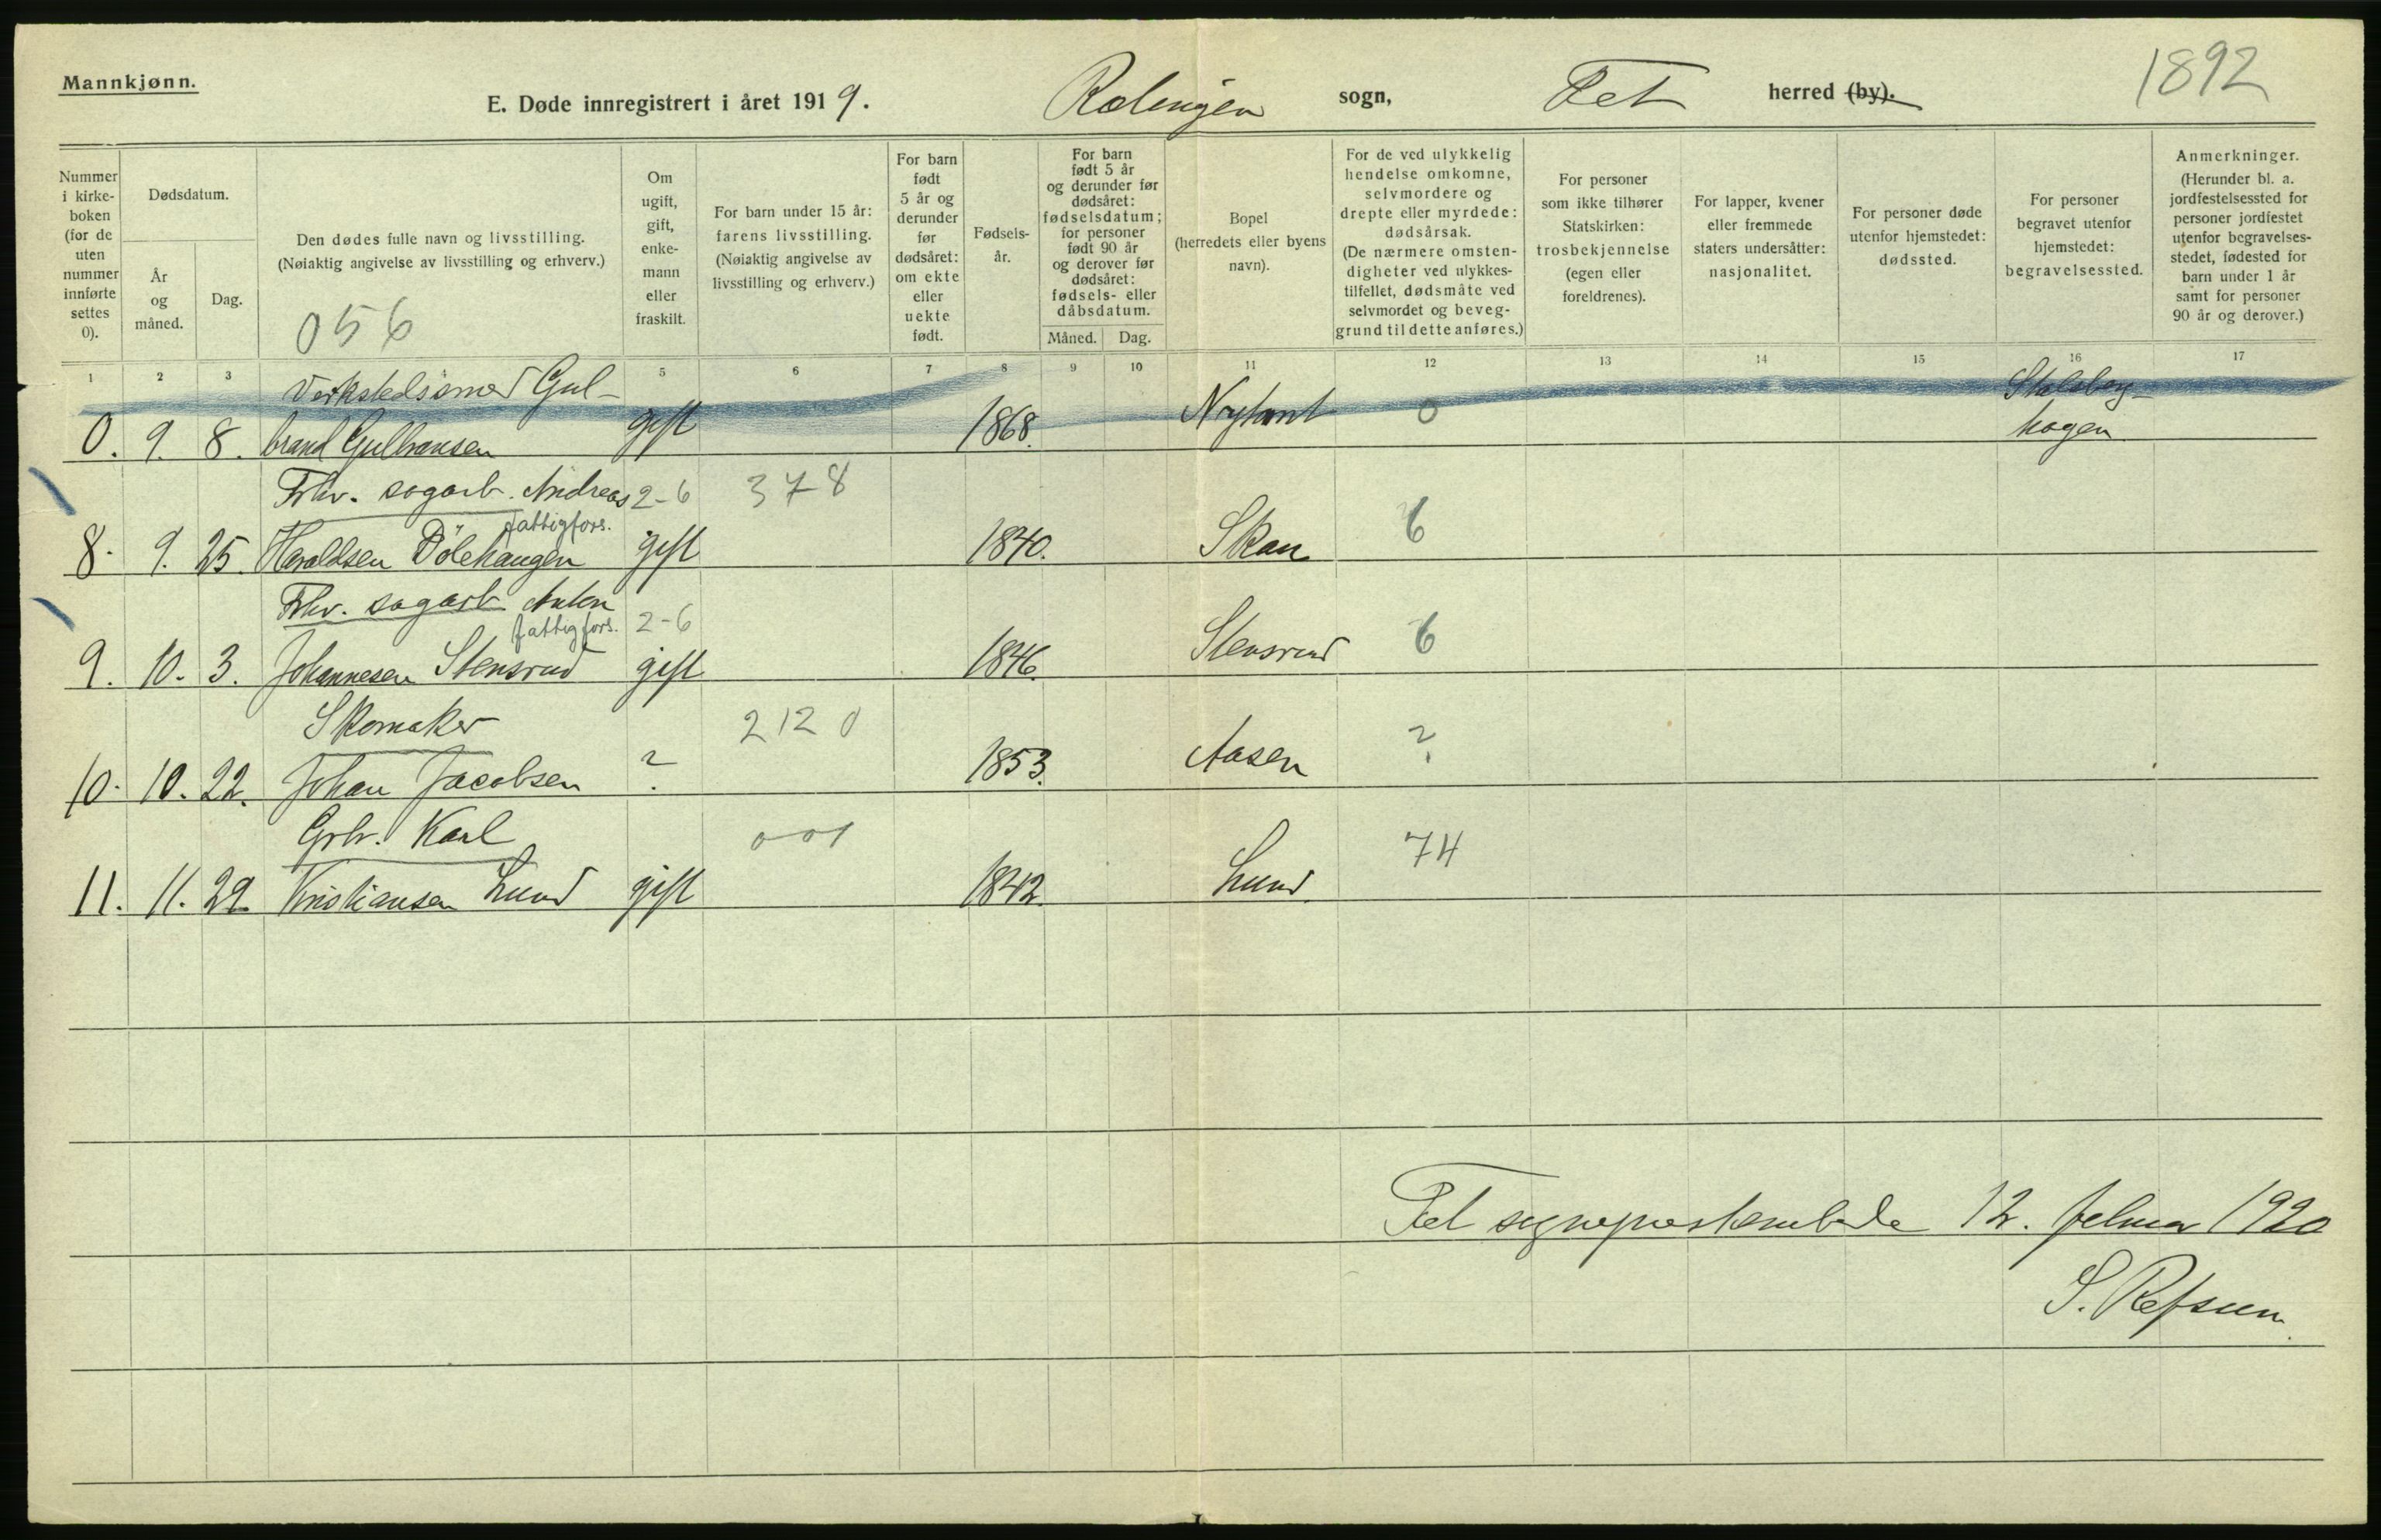 Mannkjønn.
E. Døde innregistrert i året 1919. Rælingen sogn, Fet herred (by).
1892
Nummer i kirke-boken (for de uten nummer innførte settes 0).
Dødsdatum.
År og måned.
Dag.
Den dødes fulle navn og livsstilling.
(Nøiaktig angivelse av livsstilling og erhverv.)
056
Om ugift, gift, enke-mann eller fraskilt.
For barn under 15 år: farens livsstilling. (Nøiaktig angivelse av livsstilling og erhverv.)
For barn født 5 år og derunder før dødsåret: om ekte eller uekte født.
Fødsels-år.
For barn født 5 år og derunder før dødsåret: fødselsdatum; for personer født 90 år og derover før dødsåret: fødsels- eller dåbsdatum.
Måned. Dag.
Bopel (herredets eller byens navn).
For de ved ulykkelig hendelse omkomne, selvmordere og drepte eller myrdede: dødsårsak. (De nærmere omsten-digheter ved ulykkes-tilfellet, dødsmåte ved selvmordet og beveg-grund til dette anføres.)
For personer som ikke tilhører Statskirken: trosbekjennelse (egen eller foreldrenes).
For lapper, kvener eller fremmede staters undersåtter: nasjonalitet.
For personer døde utenfor hjemstedet: dødssted.
For personer begravet utenfor hjemstedet: begravelsessted.
Anmerkninger. (Herunder bl. a. jordfestelsessted for personer jordfestet utenfor begravelses-stedet, fødested for barn under 1 år samt for personer 90 år og derover.)
1 2 3 5 6 7 8 9 10 11 12 13 14 15 16 17
Verkstedsmed Gul-
0. 9. 8. brand Gulbransen gift 1868. 0 Stalsberg-
hagen
Fhv. sagarb. Andreas 2-6 378
fattigfors.
8. 9. 25. Haraldsen Dölehaugen gift 1840. Skau 6
Fhv. sagarb. Anton 2-6
fattigfors.
9. 10. 3. Johannesen Stensrud gift 1846. Stensrud 6
Skomaker 2120
10. 10. 22. Johan Jacobsen ? 1853. Aasen ?
Grbr. Karl 001
11. 11. 29. Kristiansen Lund gift 1842. Lund. 74
Fet sogneprestembede 12. februar 1920
S. Refsum